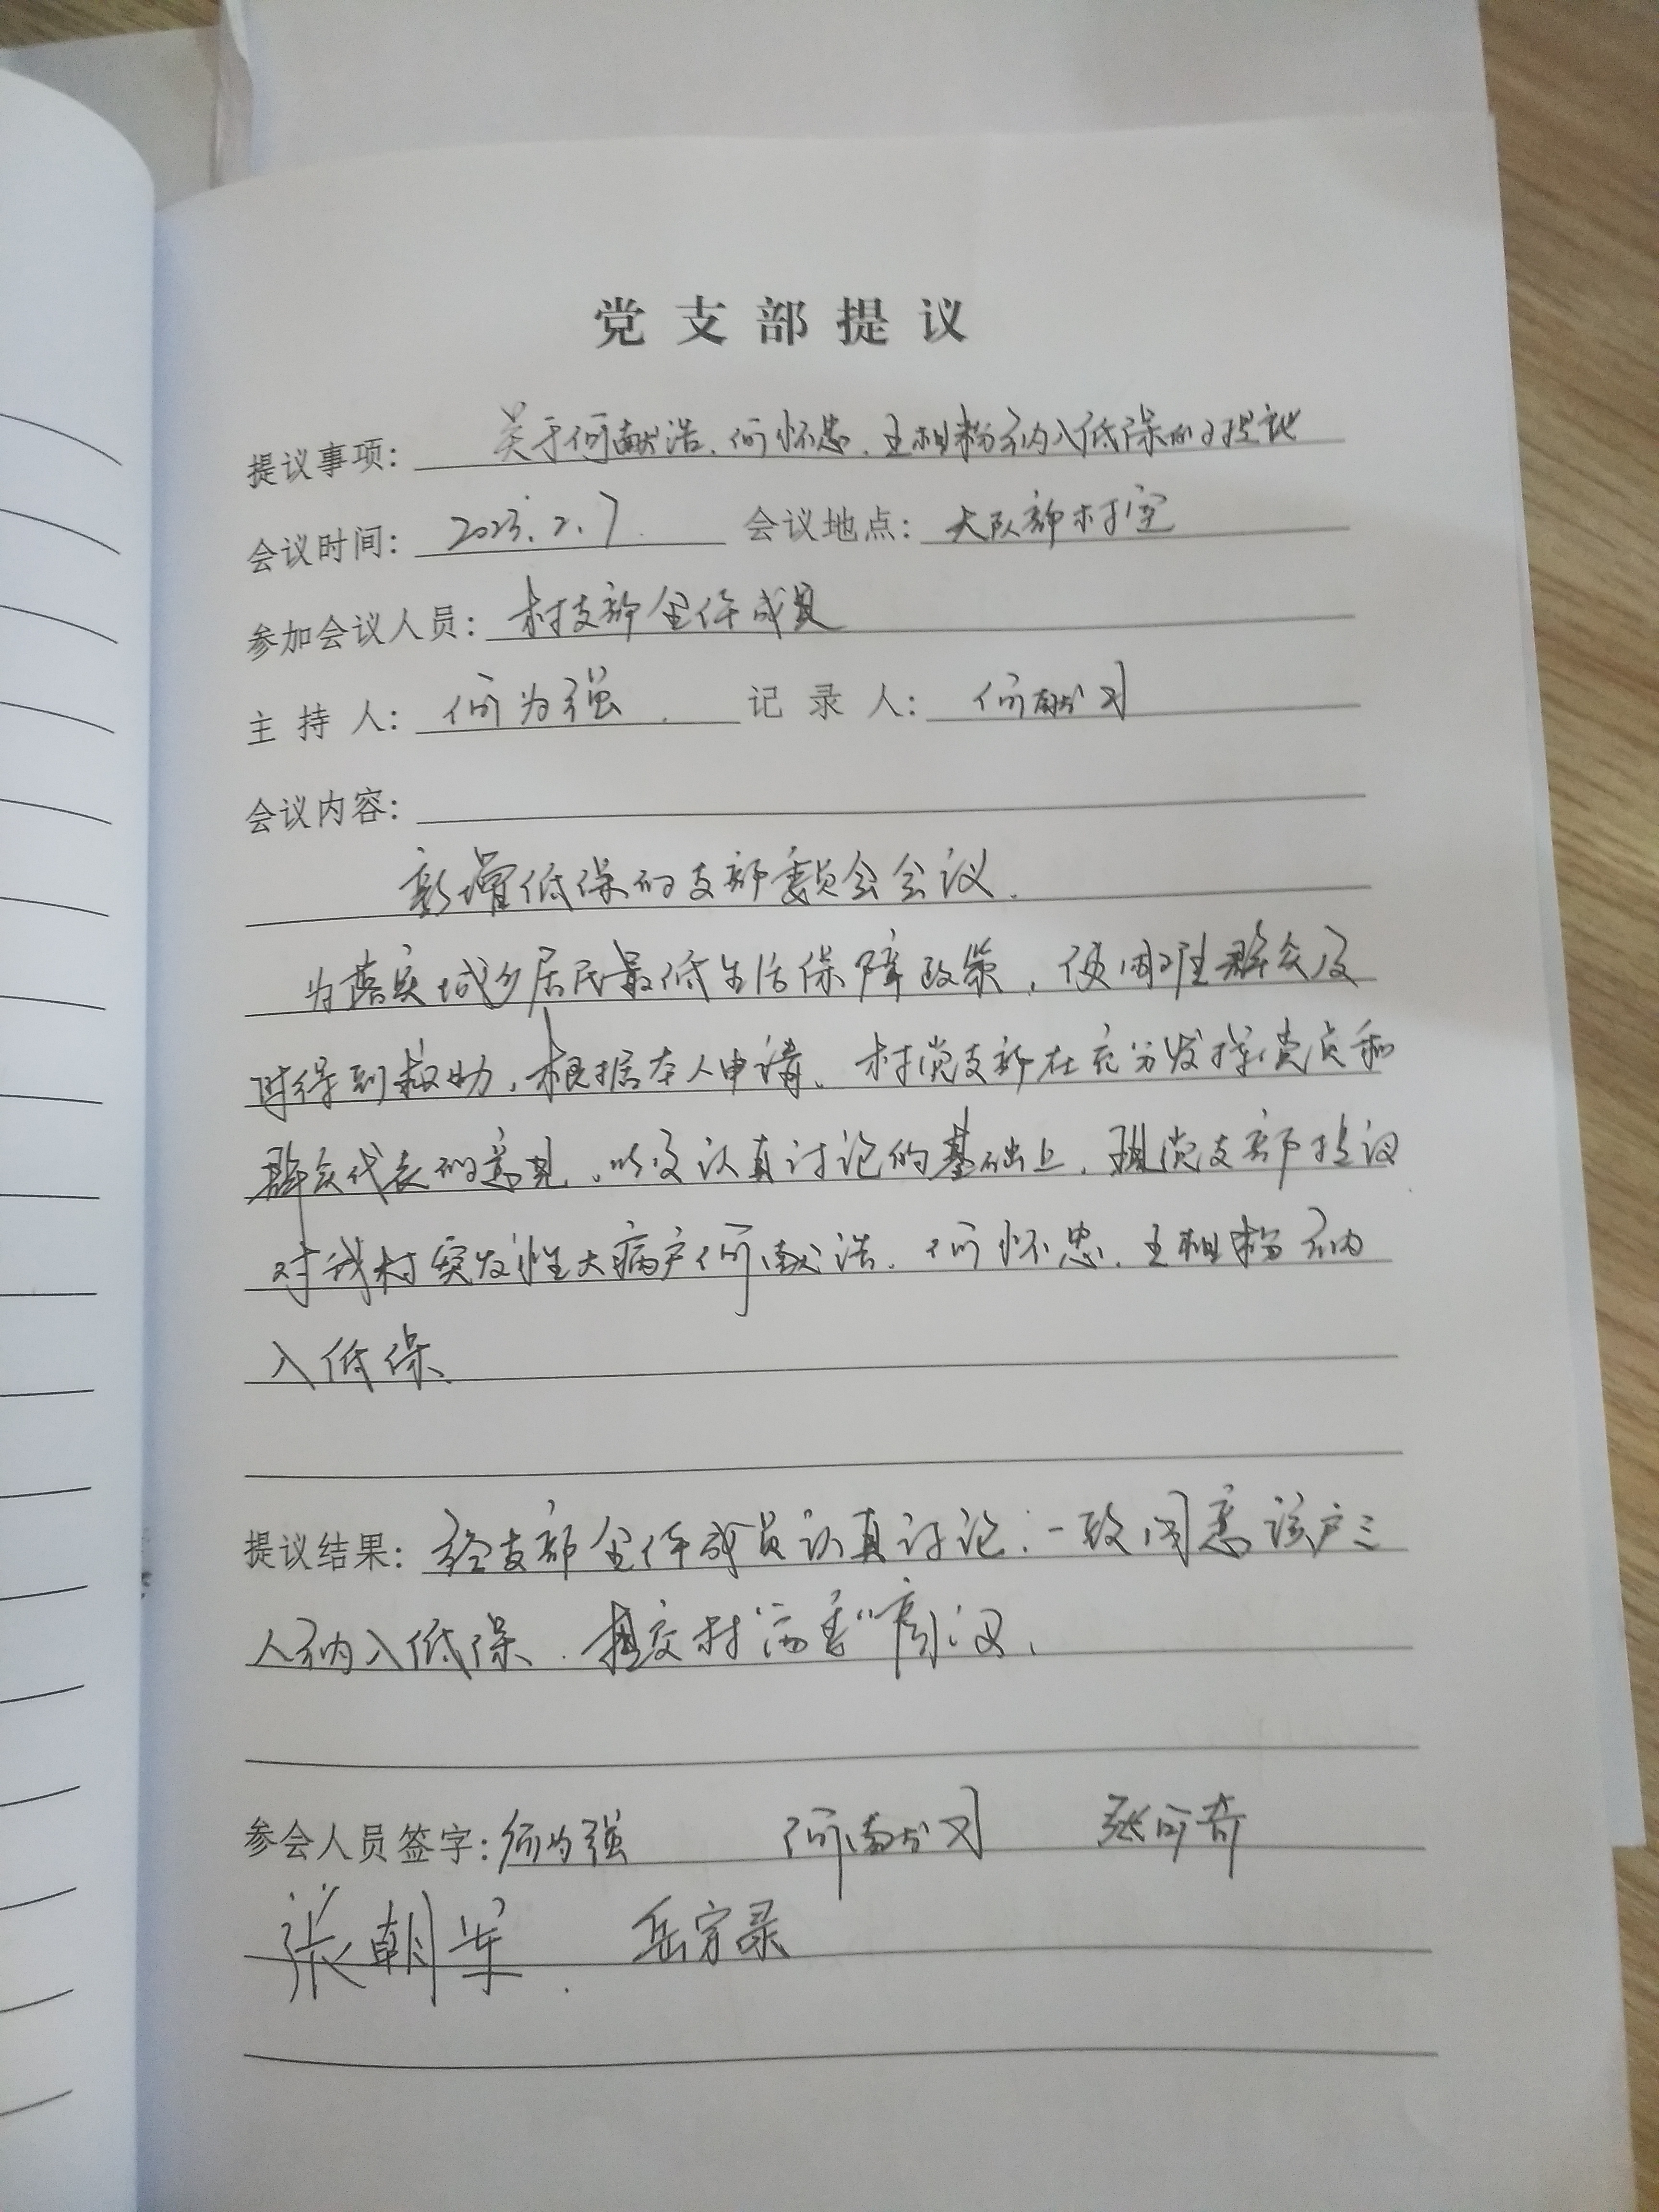 党支部提议
提议事项：关于何献浩、何怀忠、王相粉纳入低保的提议
会议时间：2023.2.7. 会议地点：大队部村室
参加会议人员：村支部全体成员
主持人：何为强. 记录人：何献习
会议内容：
新增低保的支部委员会会议.
为落实城乡居民最低生活保障政策，使困难群众及
时得到救助，根据本人申请、村党支部在充分发挥党员和
群众代表的意见，以及认真讨论的基础上，现党支部提议
对我村突发性大病户何献浩、何怀忠、王相粉纳
入低保、
提议结果：经支部全体成员认真讨论：一致同意该户三
人纳入低保、提交村“两委”商议，
参会人员签字：何为强 何献习 张可奇
张朝军. 岳宗录